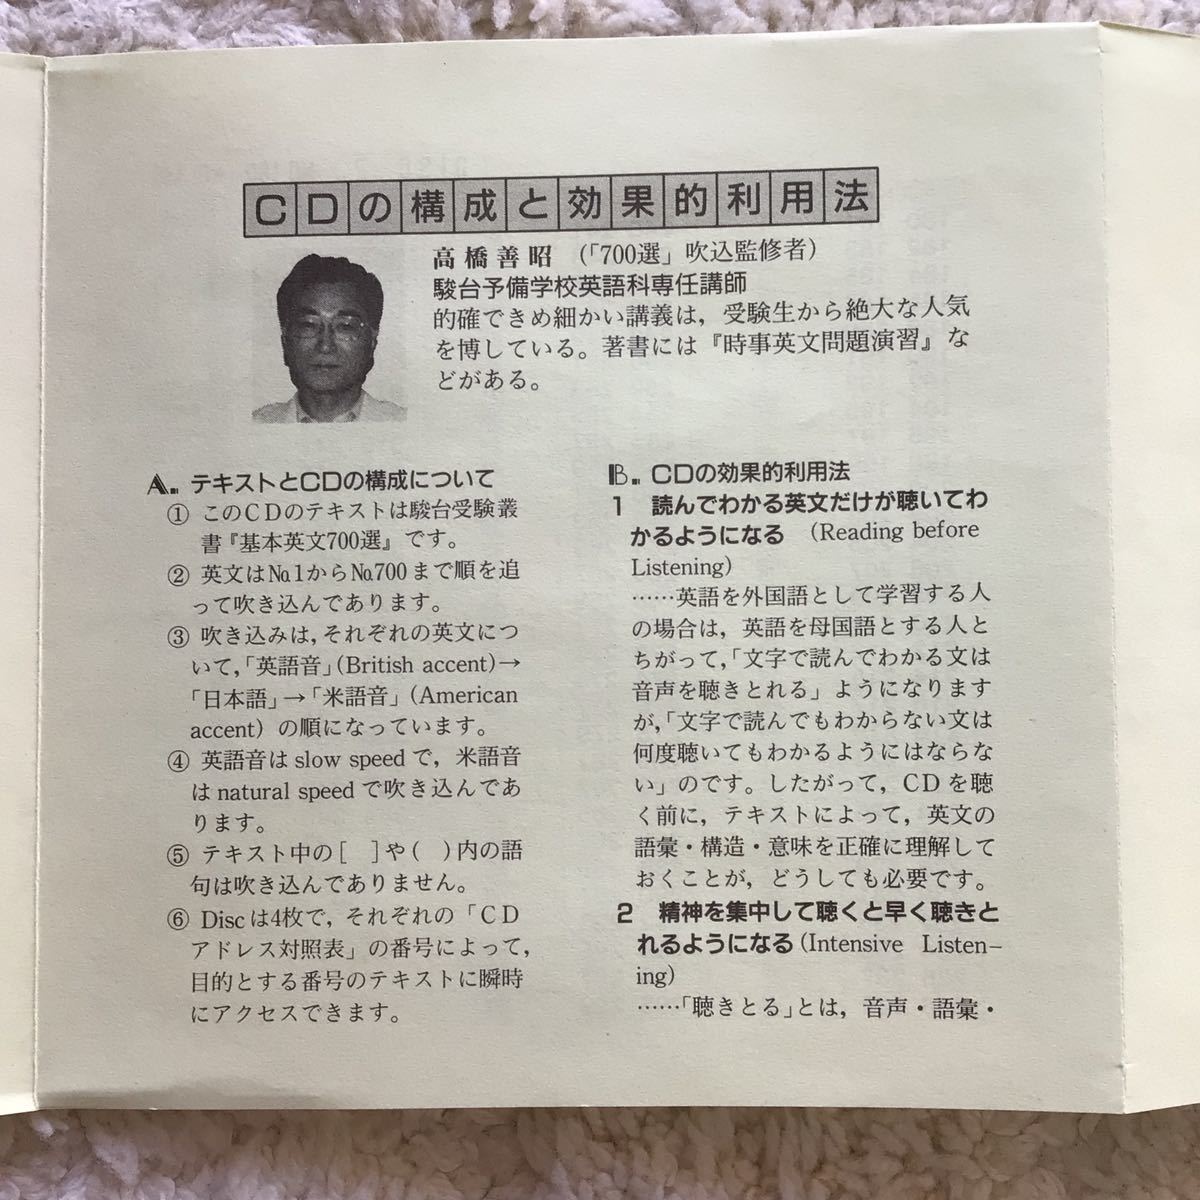 CDの構成と効果的利用法
高橋善昭 (「700選」吹込監修者)
駿台予備学校英語科専任講師
的確できめ細かい講義は，受験生から絶大な人気
を博している。著書には『時事英文問題演習』な
どがある。
A. テキストとCDの構成について
① このCDのテキストは駿台受験叢
書『基本英文700選』です。
② 英文はNo.1からNo.700まで順を追
って吹き込んであります。
③ 吹き込みは，それぞれの英文につ
いて，「英語音」(British accent)→
「日本語」→「米語音」(American
accent) の順になっています。
④ 英語音は slow speed で，米語音
は natural speed で吹き込んであ
ります。
⑤ テキスト中の[　]や(　)内の語
句は吹き込んでありません。
⑥ Discは4枚で，それぞれの「CD
アドレス対照表」の番号によって，
目的とする番号のテキストに瞬時
にアクセスできます。
B. CDの効果的利用法
1　読んでわかる英文だけが聴いてわ
かるようになる　(Reading before
Listening)
……英語を外国語として学習する人
の場合は，英語を母国語とする人と
ちがって，「文字で読んでわかる文は
音声を聴きとれる」ようになります
が，「文字で読んでもわからない文は
何度聴いてもわかるようにはならな
い」のです。したがって，CDを聴
く前に，テキストによって，英文の
語彙・構造・意味を正確に理解して
おくことが，どうしても必要です。
2　精神を集中して聴くと早く聴きと
れるようになる (Intensive Listen-
ing)
……「聴きとる」とは，音声・語彙・